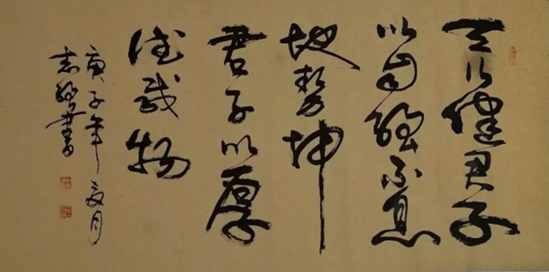 天行健君子
以自强不息
地势坤
君子以厚
德载物
庚子年夏月
书